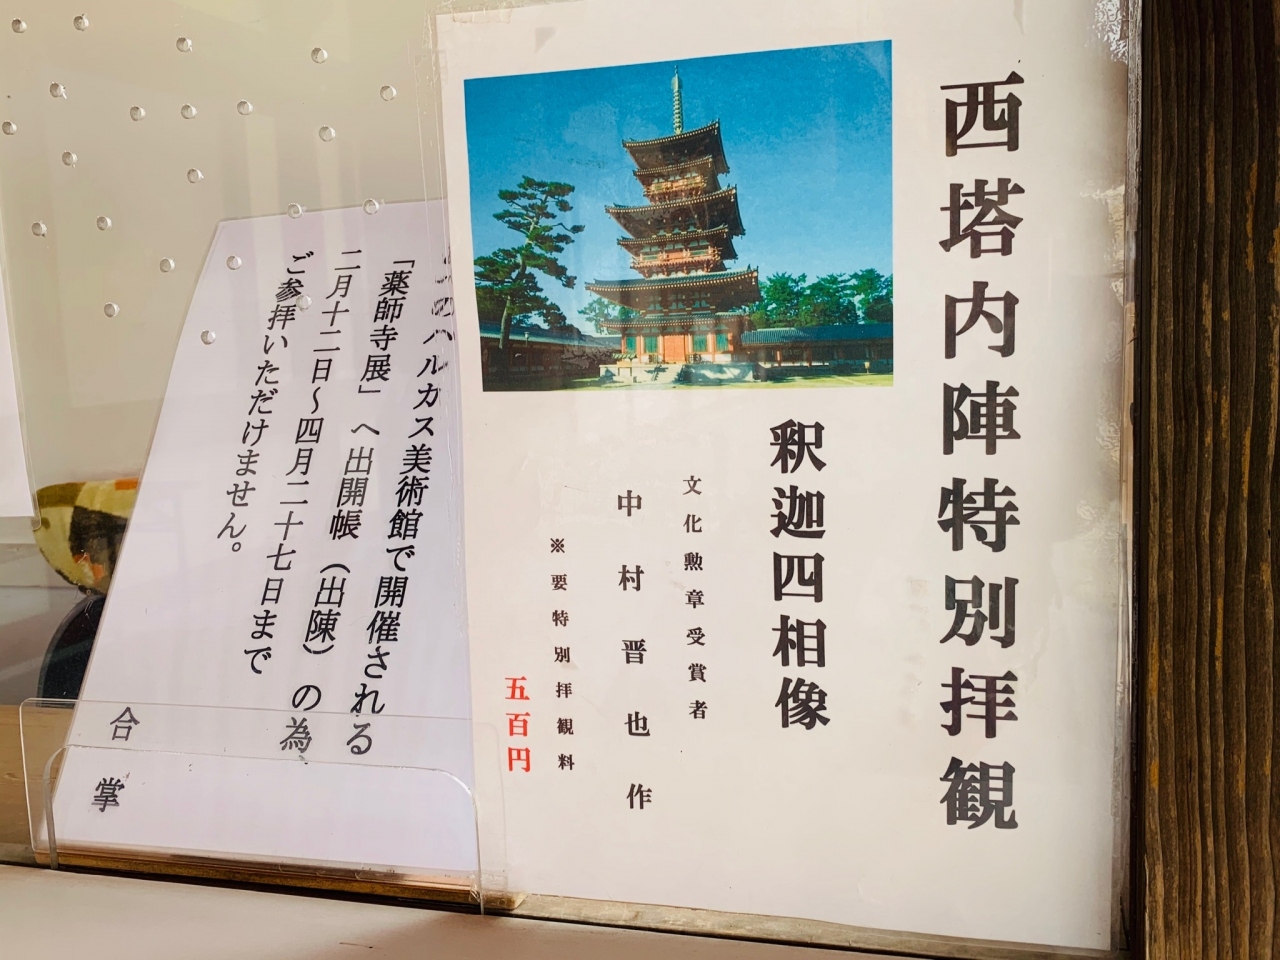 西塔内陣特別拝観
釈迦四相像
文化勲章受賞者
中村晋也作
※要特別拝観料
五百円
のハルカス美術館で開催される
「薬師寺展」へ出開帳（出陳）の為
二月十二日～四月二十七日まで
ご参拝いただけません。
合掌